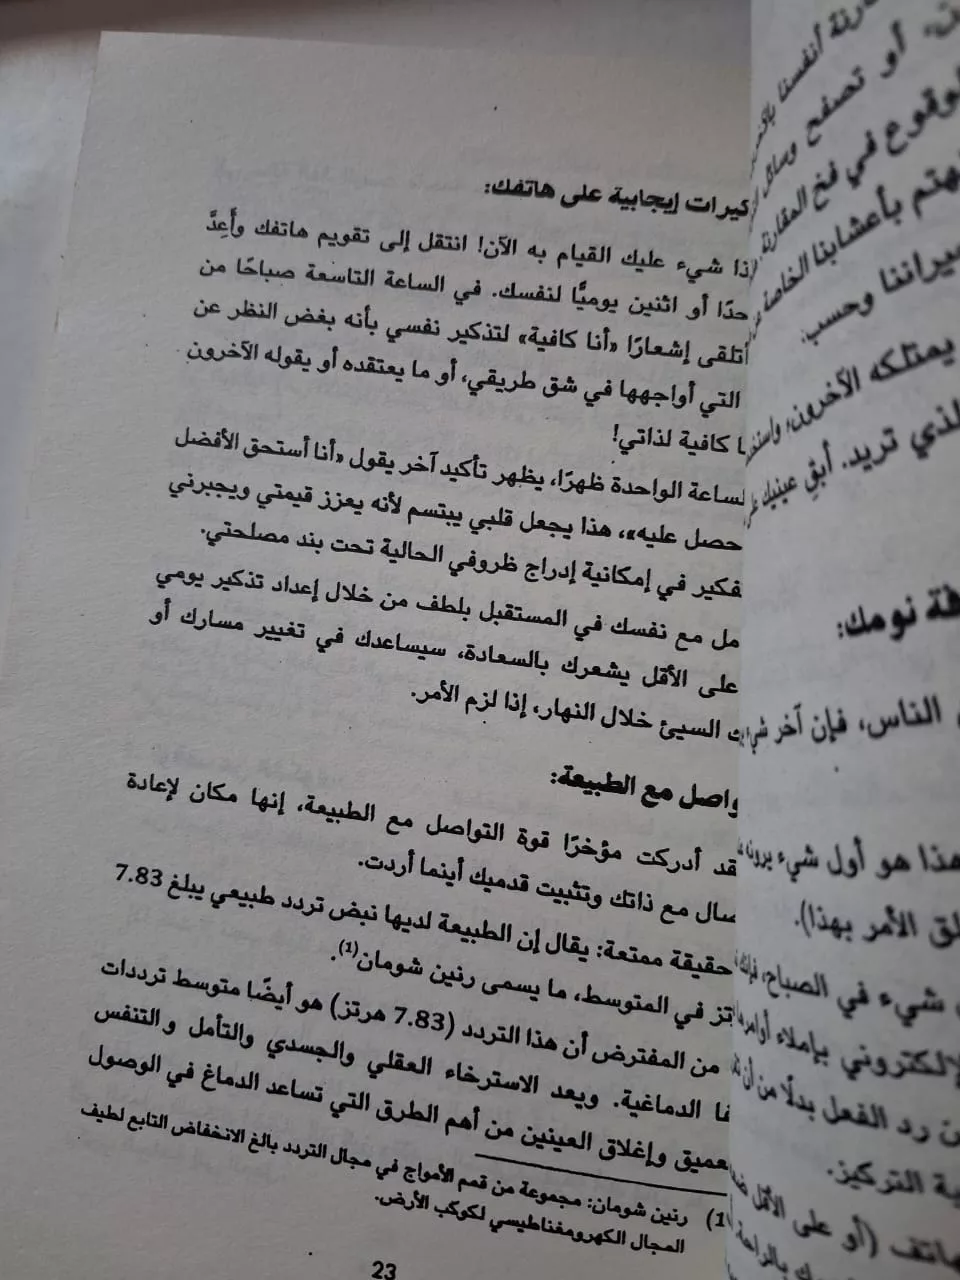 أنفسنا
أو تصفح وسائل
الوقوع في فخ المقارنة
بأعشابنا الخاصة
وحسب.
يمتلكه الآخرون؛
تريد. أبقِ عينيك على
نومك:
الناس، فإن آخر شيء
هذا هو أول شيء يرونه
الأمر بهذا).
شيء في الصباح، فإنك
بإملاء أوامرها
رد الفعل بدلًا من أن
التركيز.
(أو على الأقل
بالراحة
إيجابية على هاتفك:
شيء عليك القيام به الآن! انتقل إلى تقويم هاتفك وأَعِدَّ
أو اثنين يوميًّا لنفسك. في الساعة التاسعة صباحًا من
أتلقى إشعارًا «أنا كافية» لتذكير نفسي بأنه بغض النظر عن
التي أواجهها في شق طريقي، أو ما يعتقده أو يقوله الآخرون
كافية لذاتي!
الواحدة ظهرًا، يظهر تأكيد آخر يقول «أنا أستحق الأفضل
عليه»، هذا يجعل قلبي يبتسم لأنه يعزز قيمتي ويجبرني
في إمكانية إدراج ظروفي الحالية تحت بند مصلحتي.
مع نفسك في المستقبل بلطف من خلال إعداد تذكير يومي
على الأقل يشعرك بالسعادة، سيساعدك في تغيير مسارك أو
السيئ خلال النهار، إذا لزم الأمر.
مع الطبيعة:
أدركت مؤخرًا قوة التواصل مع الطبيعة، إنها مكان لإعادة
مع ذاتك وتثبيت قدميك أينما أردت.
حقيقة ممتعة: يقال إن الطبيعة لديها نبض تردد طبيعي يبلغ 7.83
في المتوسط، ما يسمى رنين شومان(1).
من المفترض أن هذا التردد (7.83 هرتز) هو أيضًا متوسط ترددات
الدماغية. ويعد الاسترخاء العقلي والجسدي والتأمل والتنفس
وإغلاق العينين من أهم الطرق التي تساعد الدماغ في الوصول
(1) رنين شومان: مجموعة من قمم الأمواج في مجال التردد بالغ الانخفاض التابع لطيف
المجال الكهرومغناطيسي لكوكب الأرض.
23